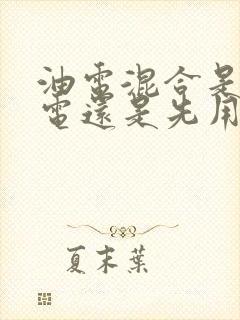 油電混合是
電還是先用
夏末葉